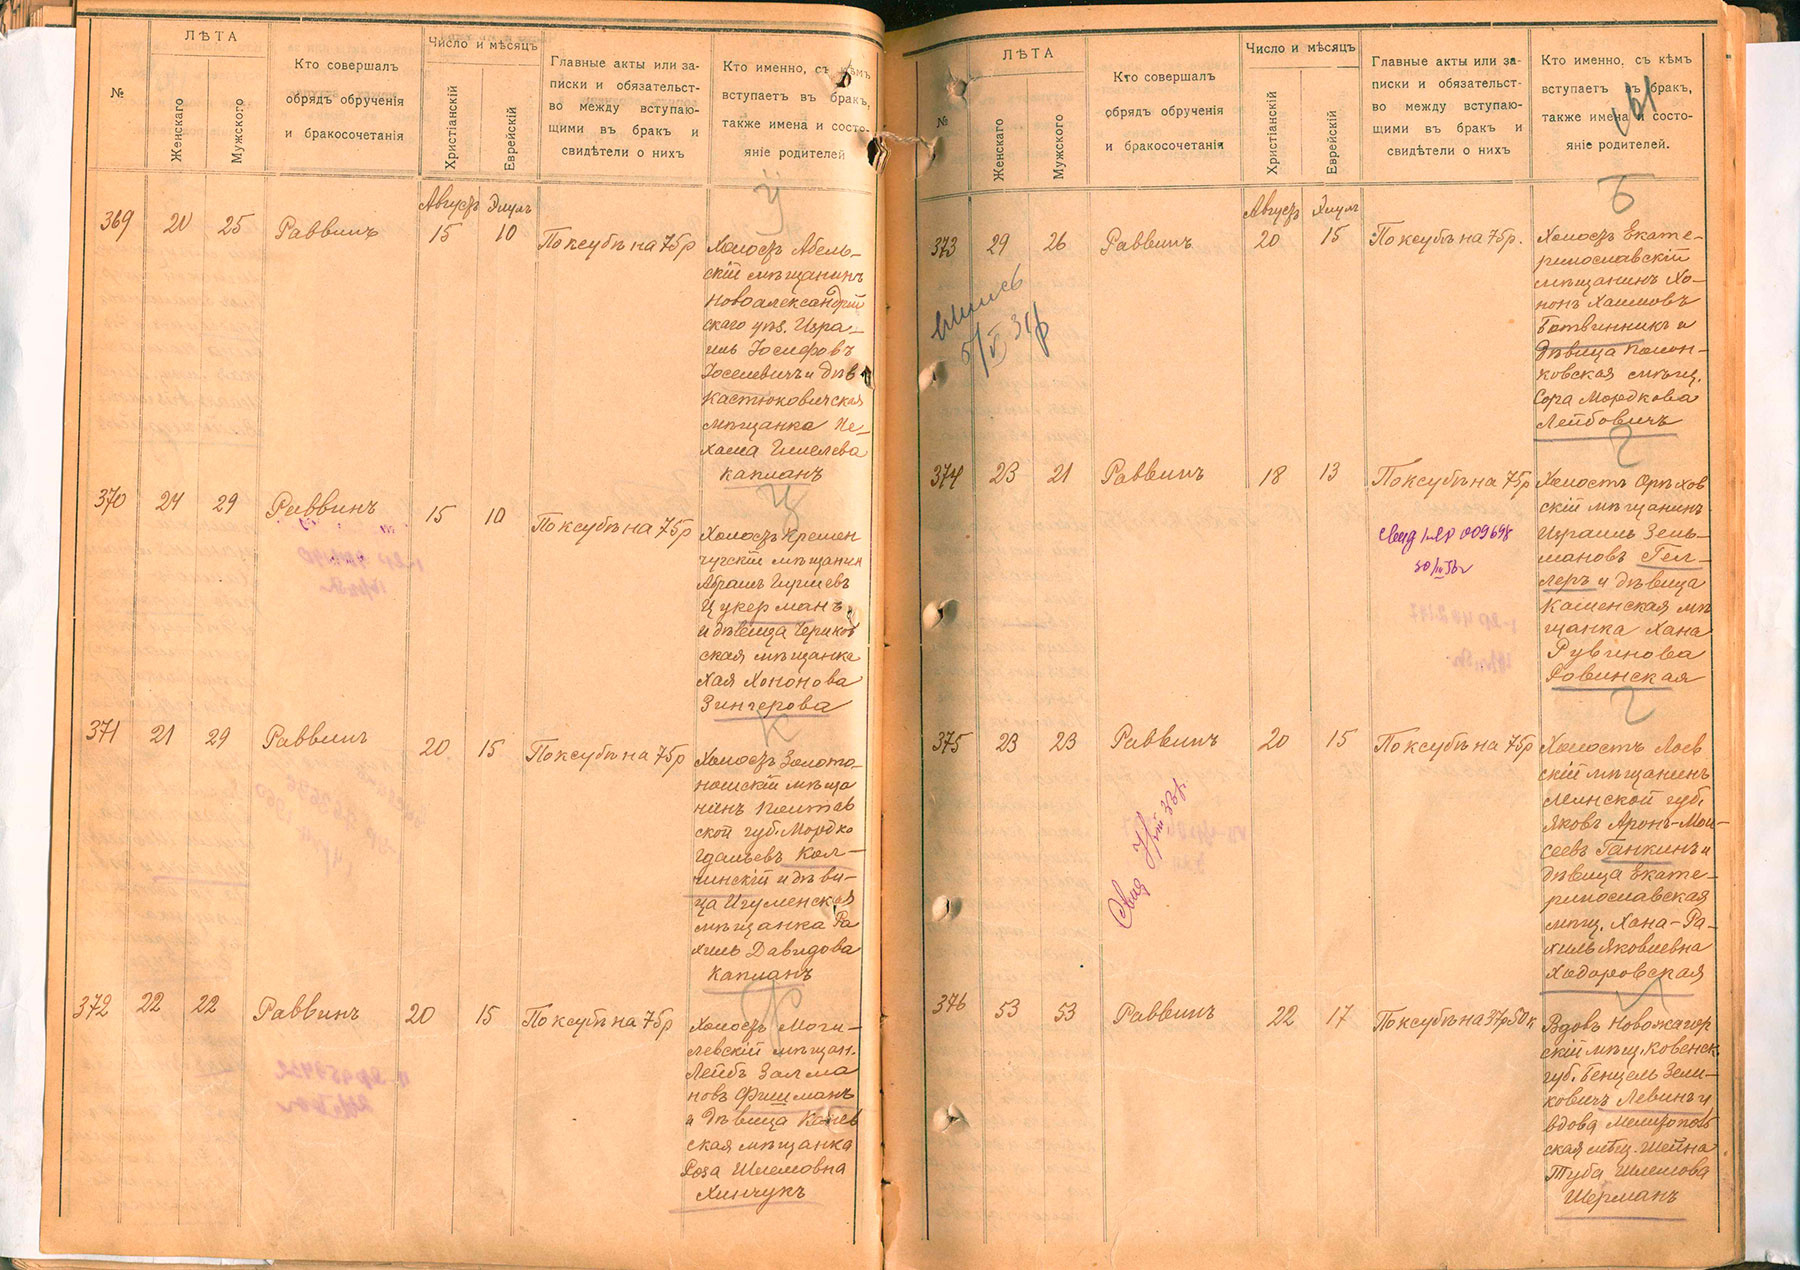 №
ЛѢТА
Женскаго
Мужского
Кто совершалъ
обрядъ обрученія
и бракосочетанія
Число и мѣсяцъ
Христіанскій
Еврейскій
Главные акты или за-
писки и обязательст-
во между вступаю-
щими въ бракъ и
свидѣтели о нихъ
Кто именно, съ кѣмъ
вступаетъ въ бракъ,
также имена и состо-
яніе родителей
Августъ Элулъ
369 20 25 Раввинъ 15 10 По ксубѣ на 75р
Холостъ Абель-
скій мѣщанинъ
Новоалександрий
скаго уѣз. Изра-
иль Іосифовъ
Іоселевичъ и дѣв
Кастюковичская
мѣщанка Не-
хама Гимелева
Капланъ
Ц
370 24 29 Раввинъ 15 10 По ксубѣ на 75р
Холостъ Кремен
чугскій мѣщанин
Абрамъ Гиршевъ
Цукерманъ
и дѣвица Чериков
ская мѣщанка
Хая Хононова
Зингерова
К
371 21 29 Раввинъ 20 15 По ксубѣ на 75р
Холостъ Золото-
ношскій мѣща
нинъ Полтав
ской губ. Мордко
Гдальевъ Кол-
чинскій и дѣви-
ца Игуменская
мѣщанка Ра
хиль Давидова
Капланъ
Ф
372 22 22 Раввинъ 20 15 По ксубѣ на 75р
Холостъ Моги-
левскій мѣщан.
Лейбъ Залма
новъ Фишманъ
и дѣвица Кіев
ская мѣщанка
Роза Шлемовна
Хинчукъ
№
ЛѢТА
Женскаго
Мужского
Кто совершалъ
обрядъ обрученія
и бракосочетанія
Число и мѣсяцъ
Христіанскій
Еврейскій
Главные акты или за-
писки и обязательст-
во между вступаю-
щими въ бракъ и
свидѣтели о нихъ
Кто именно, съ кѣмъ
вступаетъ въ бракъ,
также имена и состо-
яніе родителей.
Августъ Элулъ
Б
373 29 26 Раввинъ 20 15 По ксубѣ на 75р.
5/V 31р
Холостъ Екате-
ринославскій
мѣщанинъ Хо-
нонъ Хаимовъ
Ботвинникъ и
дѣвица Полон-
ковская мѣщ.
Сора Мордкова
Лейбовичъ
Г
374 23 21 Раввинъ 18 13 По ксубѣ на 75р
Холостъ Орѣхов
скій мѣщанинъ
Израиль Зель-
мановъ Гел-
леръ и дѣвица
Каменская мѣ
щанка Хана
Рувинова
Ровинская
Г
375 23 23 Раввинъ 20 15 По ксубѣ на 75р
Холостъ Лоев
скій мѣщанинъ
Минской губ.
Яковъ Аронъ-Мои-
сеевъ Ганкинъ и
дѣвица Екате-
ринославская
мѣщ. Хана-Ра-
хиль Яковлевна
Ходоровская
376 53 53 Раввинъ 22 17 По ксубѣ на 37р50к
Вдовъ Новожагор
скій мѣщ. Ковенск
губ. Бенцель Зели-
ковичъ Левинъ и
вдова Мелитополь
ская мѣщ. Шейна
Туба Шлемова
Шерманъ